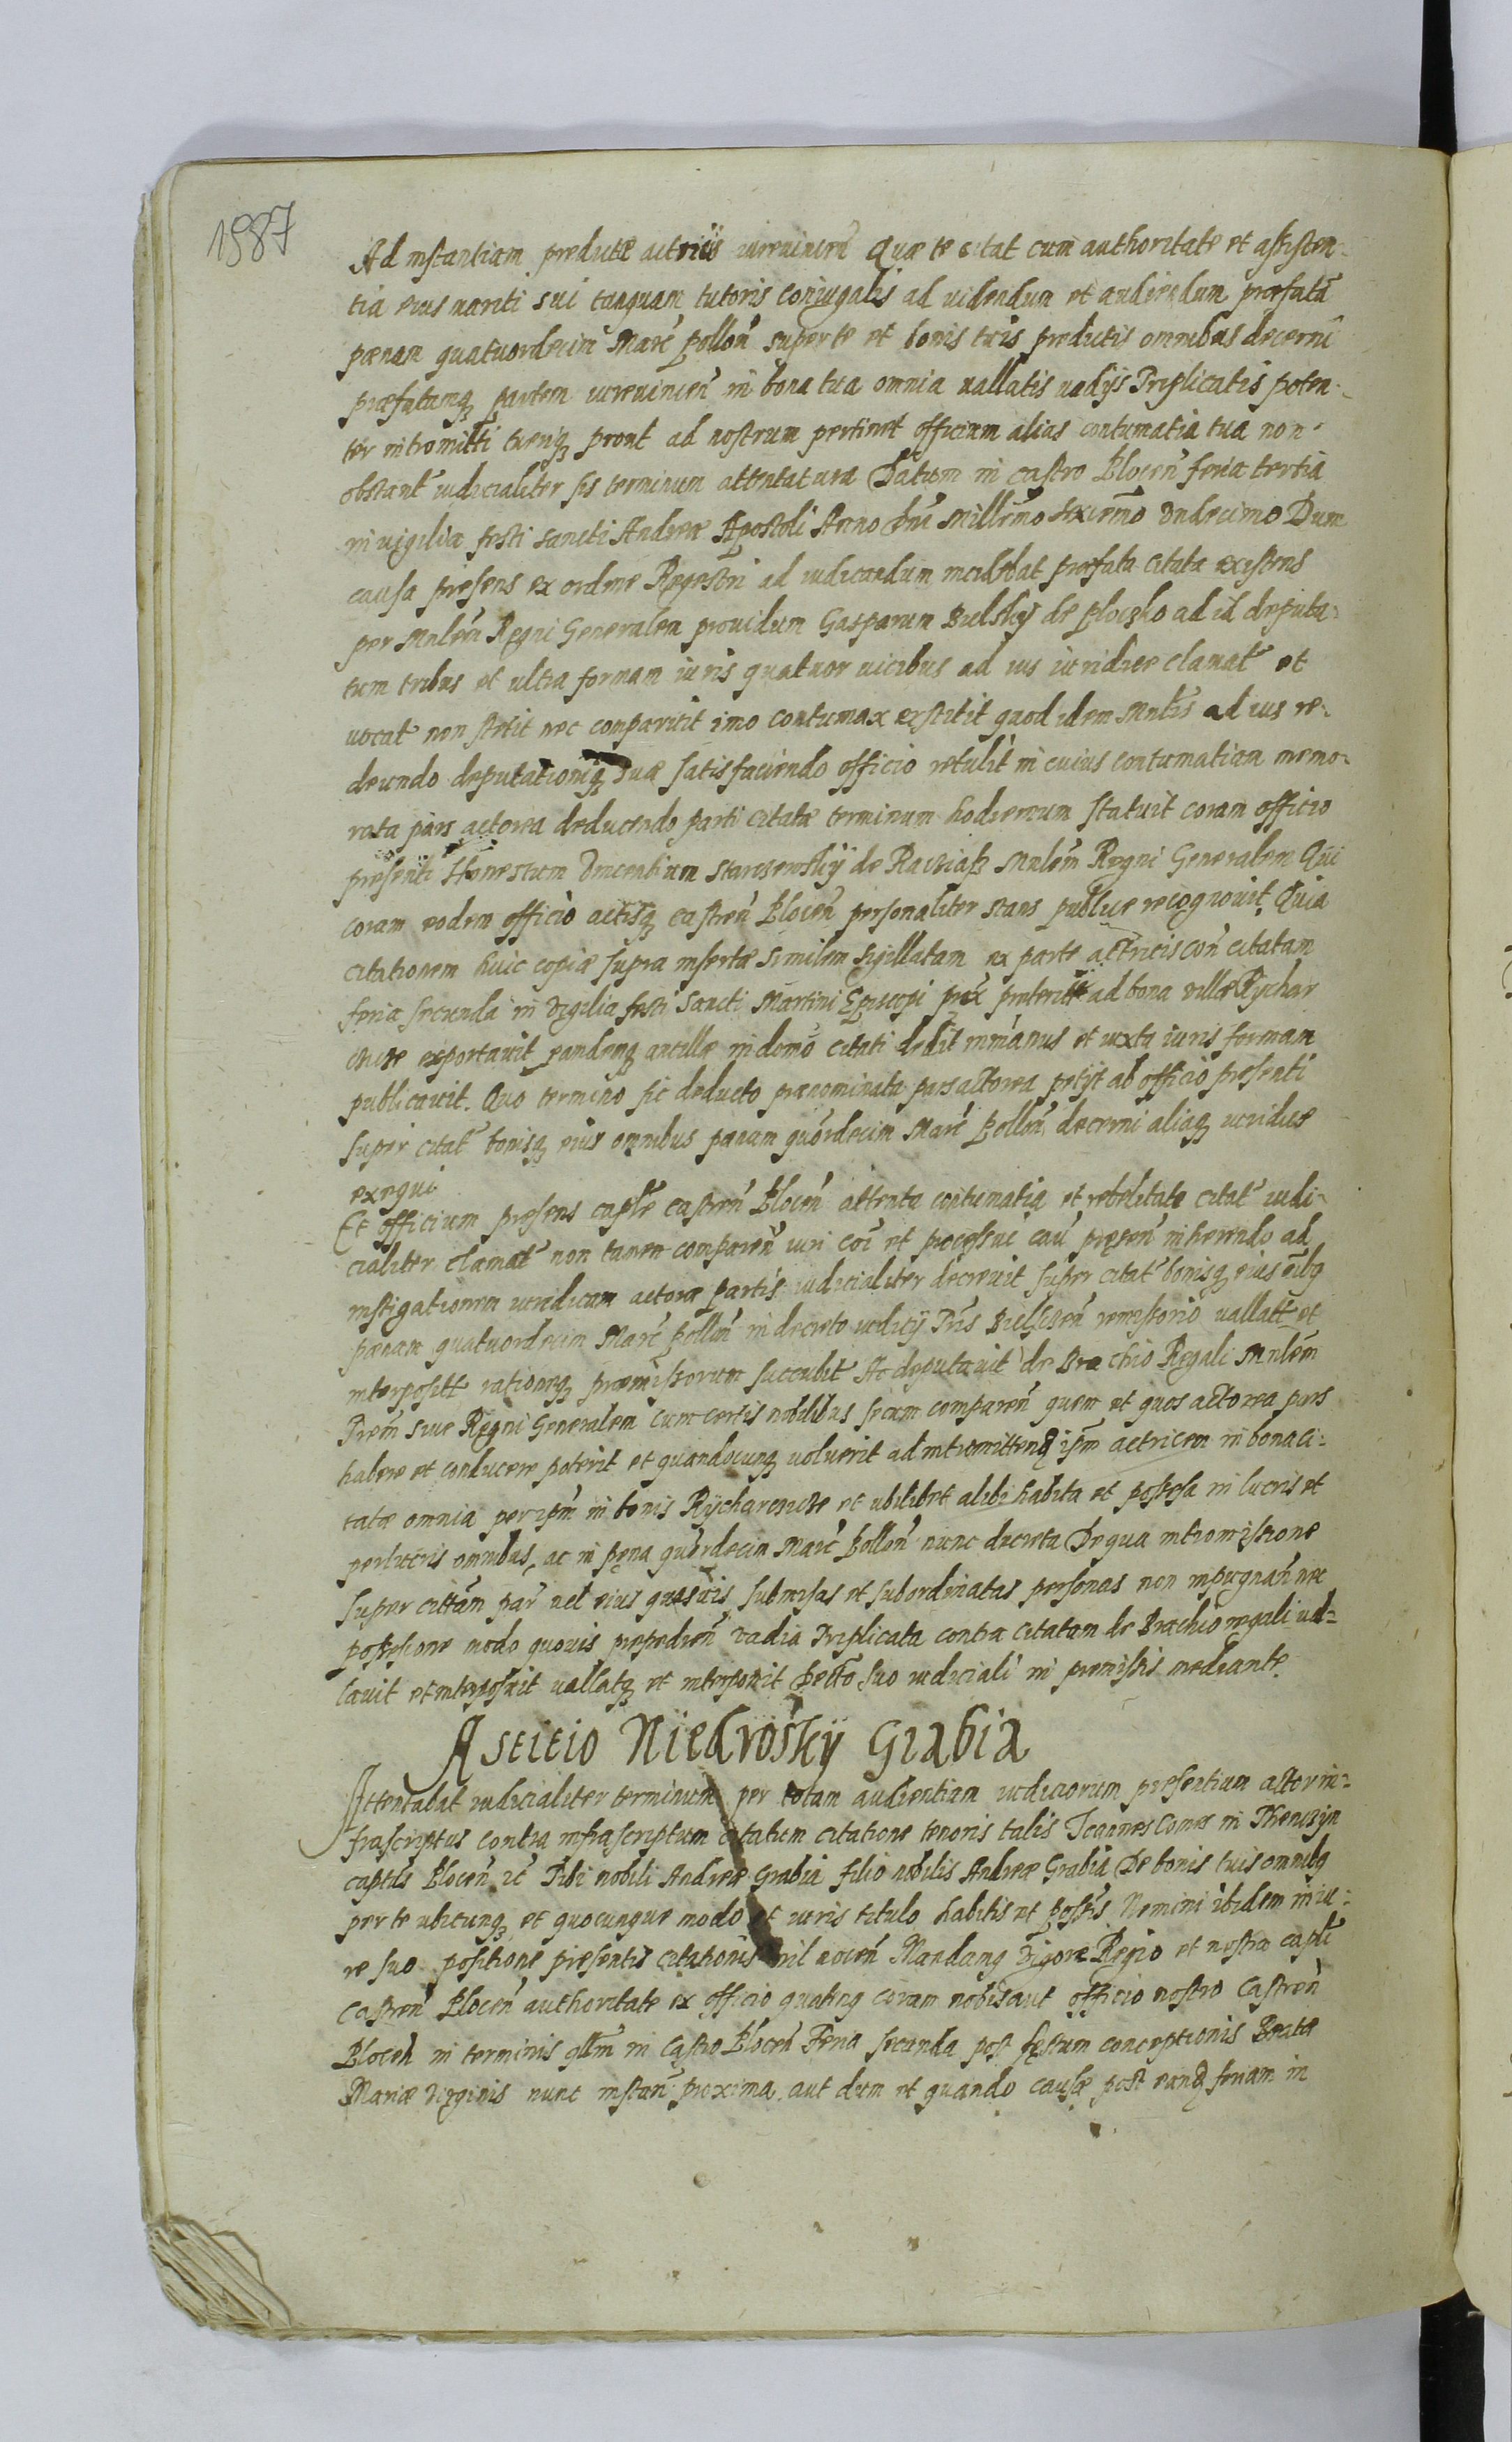 1987
Ad instantiam predictæ actricis iurevincen̄ Quæ te citat cum authoritate et assisten-
tia eius mariti sui tanquam tutoris coniugalis ad videndum et audiendum præfatā
pænam quatuordecim Marć pollon̄ super te et bonis tuis predictis omnibus decerni
præfatamq partem iurevincen̄ in bona tua omnia vallatis vadijs Triplicatis poten-
ter intromitti tueriq pront ad nostrum pertinet officium alias contumatia tua non
obstant̄ iudicialiter sis terminum attentatura Datum in castro Plocen̄ feria tertia
in vigilia festi sancti Andreæ Apostoli Anno Dn̄i Millēmo sexcēmo Undecimo Dum
causa presens ex ordine Regestri ad iudicandum incidebat præfata citata existens
per Mnlēm Regni Generalem providum Gasparum Bielsky de Ploczko ad id deputa-
tum tribus et ultra formam iuris quatuor vicibus ad ius iuridice clamat̄ et
vocat̄ non stetit nec comparuit imo contumax extitit quod idem Mnlīs ad ius re-
deundo deputationiq suæ satisfaciendo officio retulit in cuius contumatiam memo-
rata pars actorea deducendo parti citatæ terminum hodiernum statuit coram officio
presenti Honestum Vincentium Starczewskÿ de Raciąsz Mnlēm Regni Generalem Qui
coram eodem officio actisq castren̄ Plocen̄ personaliter stans publice recognovit, Quia
citationem huic copiæ supra insertæ similem sigillatam ex parte actricis con̄ citatam
feria secunda in vigilia festi sancti Martini Episcopi prox̄ preteriti ad bona villæ Rychar
cicze exportavit eandemq ancillæ in domo citati dedit in manus et iuxta iuris formam
publicavit. Quo termino sic deducto prænominata pars actorea petijt ab officio presenti
super citat̄ bonisq eius omnibus pænam quōrdecim Marć Pollon̄ decerni aliaq iuridice
exequi
Et officium presens capl̄e castren̄ Plocen̄ attenta contumatia et rebelitate citat̄ iudi-
cialiter clamat̄ non tamen comparen̄ iuri cōi et processui cau̅ presen̄ inherendo ad
instigationem iuridicam actoræ partis iudicialiter decrevit super citat̄ bonisq eius oībq
pænam quatuordecim Marć Pollon̄ in decreto iudicij Tris Bielscen̄ remissorio vallatt et
interpositt rationeq præmissorum succubit Ac deputavit de Brachio Regali Mnlēm
Trēm sive Regni Generalem cum certis nobilibus secum comparen̄ quem et quos actorea pars
habere et conducere poterit et quandocunq voluerit ad intromittendq ip̄m actricem in bona ci-
tatæ omnia per ip̄m in bonis Rÿcharcicze et ubilibet alibi habita et possessa in lucris et
perlucris omnibus, ac in pęna quōrdecim Marć Pollon̄ nunc decreta De qua intromissione
super citt̄am par̄ vel eius quasvis submissas et subordinatas personas non impugnan̄ nec
possessione modo quovis prepedien̄ vadia Triplicata contra citatam de Brachio regali val-
lavit et interposuit vallatq et interponit Decto suo iudiciali in premissis mediante
Astitio Nïedrosky Grabia
Attentabat iudicialiter terminum per totam audientiam iudiciorum presentium actor in-
frascriptus contra infrascriptum citatum citatione tenoris talis Joannes Comes in Thenczÿn
captūs Plocen̄ ic̄ Tibi nobili Andreæ Grabia filio nobilis Andreæ Grabia De bonis tuis omnibq
per te ubicunq et quocunque modo et iuris titulo habitis et possīs Nemini ibidem in iu-
re suo positione presentis citationis nil nocen̄ Mandamq Vigore Regio et nostræ capl̄i
castren̄ Plocen̄ authoritate ex officio quatinq coram nobis aut officio nostro castren̄
Plocen̄ in terminis qllm̄ in Castro Plocen̄ Feria secunda post festum conceptionis Beatæ
Mariæ Virginis nunc instan̄ proxima. aut dum et quando causæ post eandq feriam in